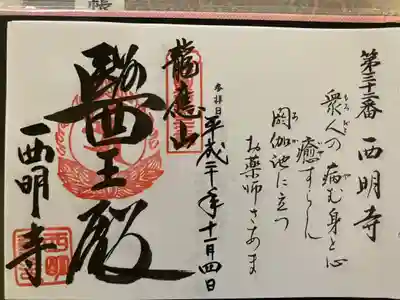 第三十二番 西明寺
衆人の病む身と心
もろびと
癒すらん
いや
閼伽池に立つ
お薬師さあま
参拝日 平成二十年十一月四日
龍應山
醫王殿
西明寺
帳